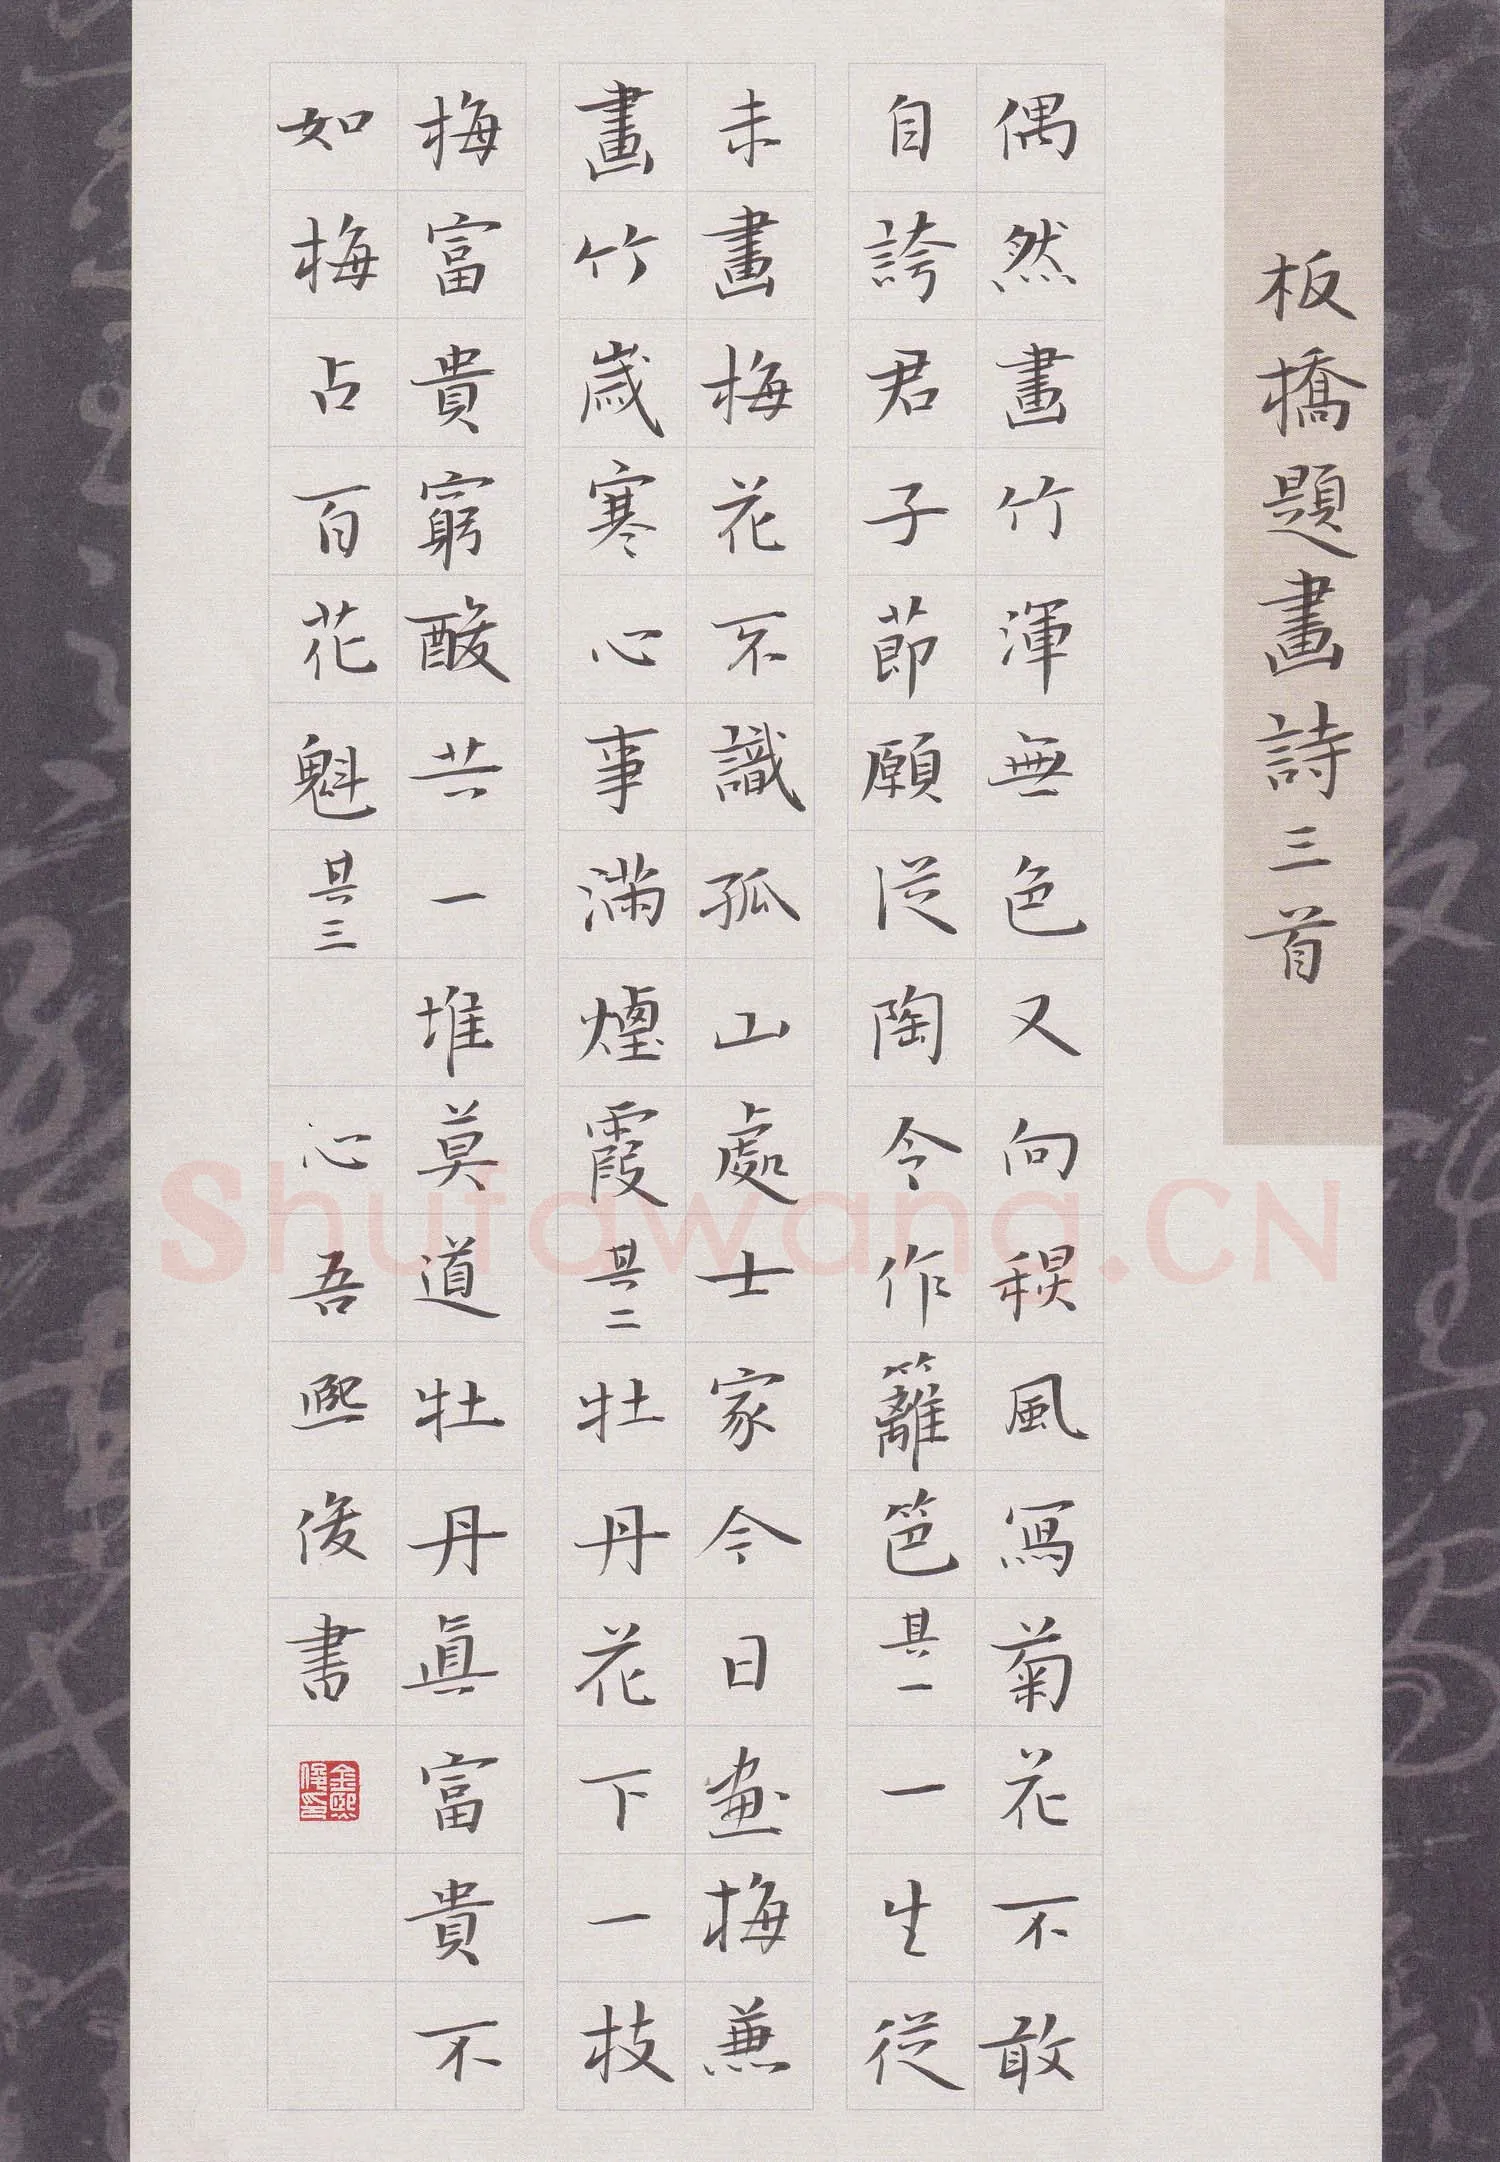 板橋題畫詩三首
偶然畫竹渾無色又向秋風寫菊花不敢
自誇君子節願從陶令作籬笆其一一生從
未畫梅花不識孤山處士家今日画梅兼
畫竹歲寒心事滿煙霞其二牡丹花下一枝
梅富貴窮酸共一堆莫道牡丹眞富貴不
如梅占百花魁其三
心吾熙俊書
金熙俊印
Shufawang.CN